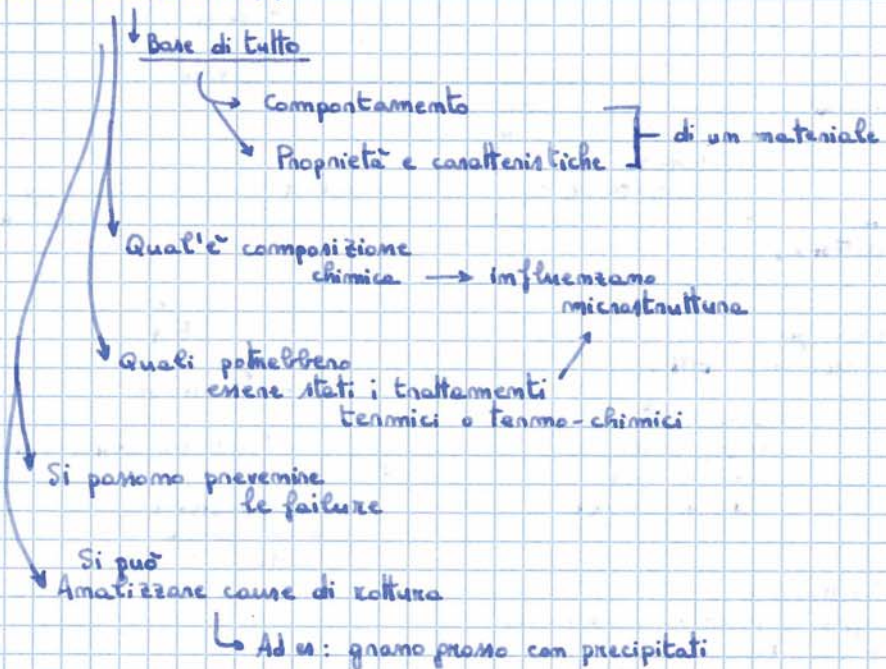 Base di tutto
Comportamento
Proprietà e caratteristiche
di un materiale
Qual'è composizione
chimica → influenzano
microstruttura
Quali potrebbero
essere stati i trattamenti
termici o termo-chimici
Si possono prevenire
le failure
Si può
Analizzare cause di rottura
Ad es: grano grosso con precipitati